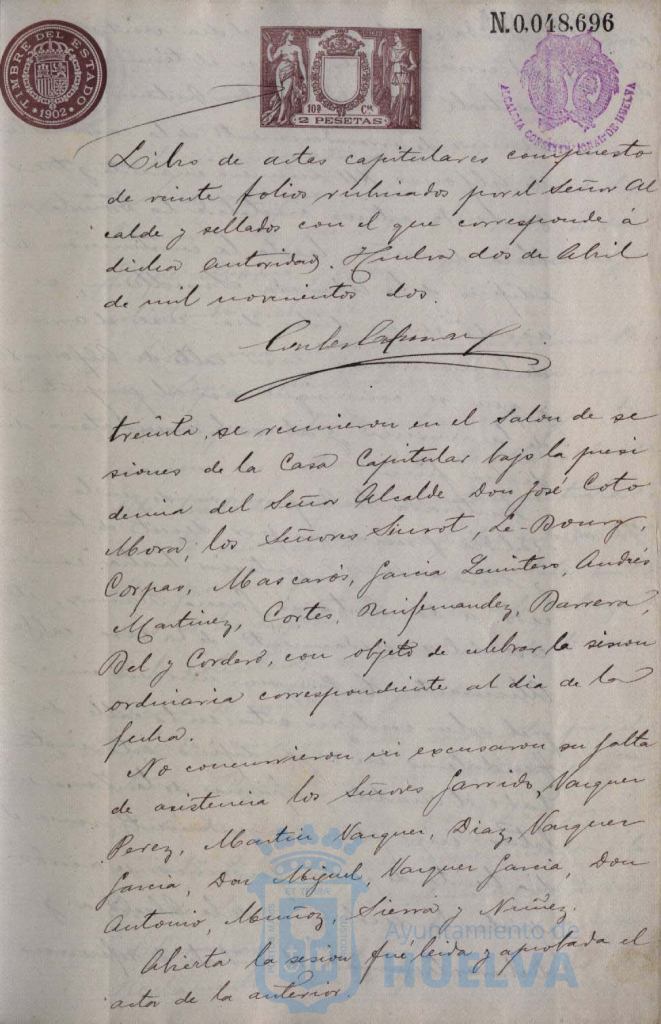 N.0.048.696
TIMBRE DEL ESTADO
1902
10ª Cª
2 PESETAS
ALCALDIA CONSTITUCIONAL DE HUELVA
Libro de actas capitulares compuesto
de veinte folios rubricados por el Señor Al
calde y sellados con el que corresponde á
dicha autoridad. Huelva dos de Abril
de mil novecientos dos.
treinta, se reunieron en el Salon de se
siones de la Casa Capitular bajo la presi
dencia del Señor Alcalde Don José Coto
Mora, los Señores Siurot, Le-Bourg,
Corpas, Mascarós, Garcia Quintero, Andrés
Martinez, Cortes, Ruifernandez, Barrera,
Bel y Cordero, con objeto de celebrar la sesion
ordinaria correspondiente al dia de la
fecha.
No concurrieron ni excusaron su falta
de asistencia los Señores Garrido, Vazquez
Perez, Martin Vazquez, Diaz, Vazquez
Garcia, Don Miguel, Vazquez Garcia, Don
Antonio, Muñoz, Sierra y Nuñez.
Abierta la sesion fué leida y aprobada el
acta de la anterior.
Ayuntamiento de
HUELVA